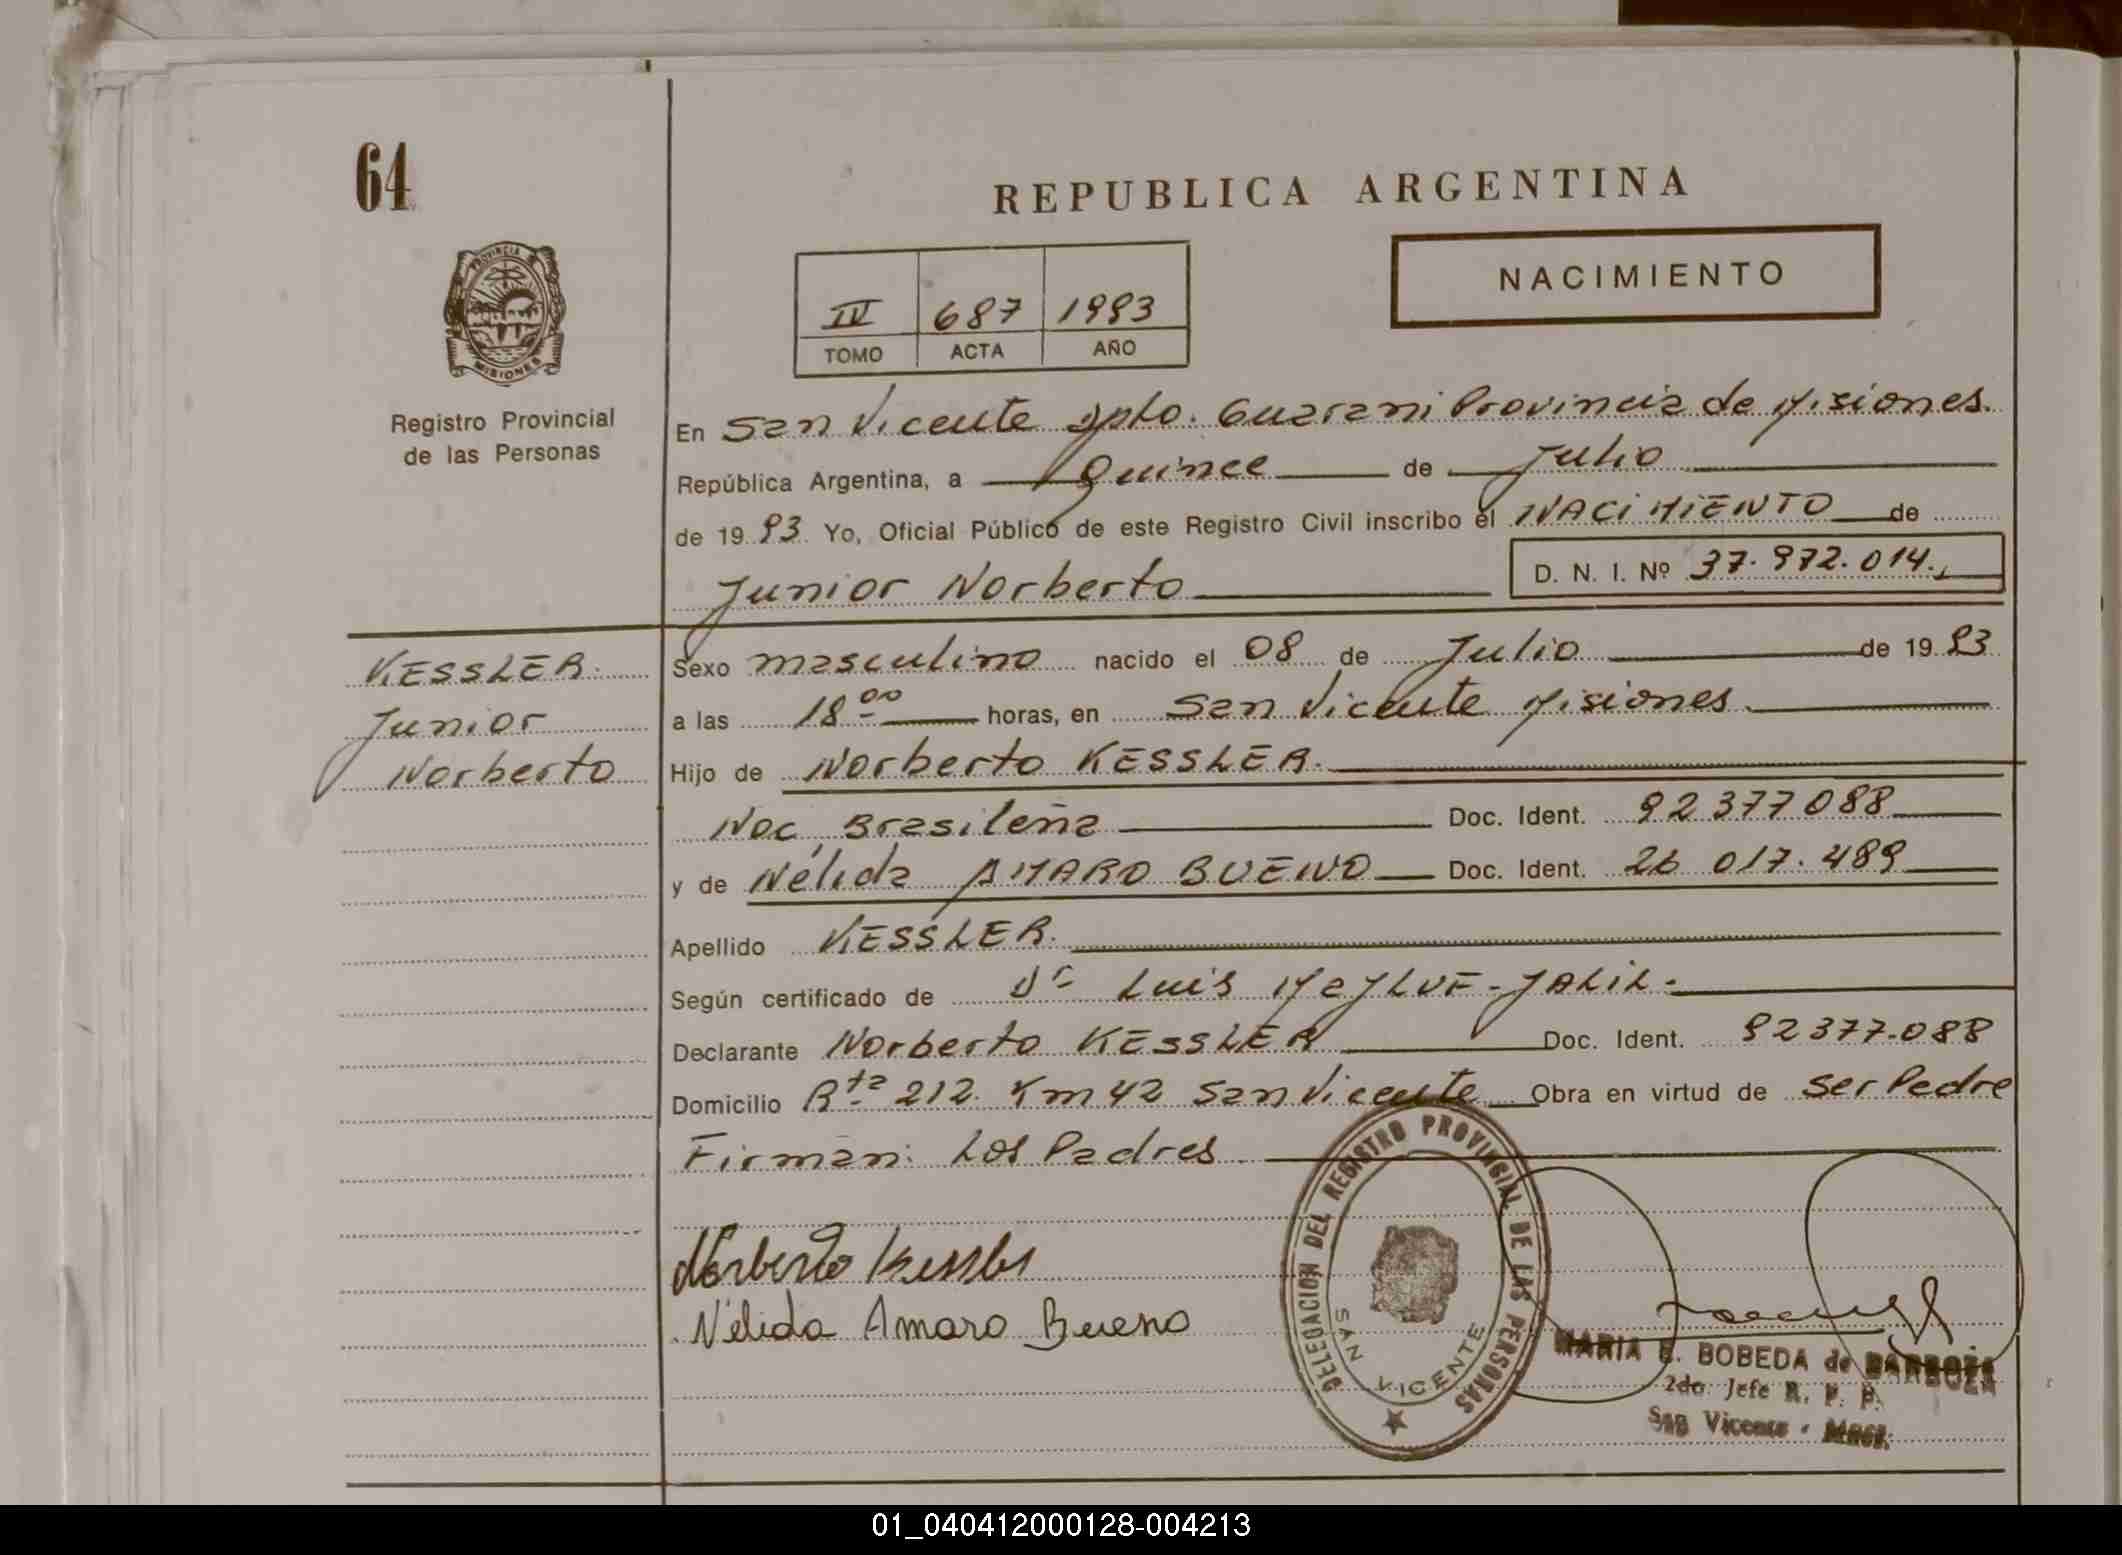 64
REPUBLICA ARGENTINA
PROVINCIA
MISIONES
NACIMIENTO
IV 687 1993
TOMO ACTA AÑO
Registro Provincial
de las Personas
En San Vicente Dpto. Guarani Provincia de Misiones.
República Argentina, a Quince de Julio
de 19 93 Yo, Oficial Público de este Registro Civil inscribo el NACIMIENTO de
Junior Norberto D. N. I. Nº 37.972.014.
KESSLER.
Junior
Norberto
Sexo masculino nacido el 08 de Julio de 19 93
a las 18 00 horas, en San Vicente Misiones.
Hijo de Norberto KESSLER.
Nac. Brasileña Doc. Ident. 92377088
y de Nélida AMARO BUENO Doc. Ident. 26 017.489
Apellido KESSLER.
Según certificado de Dr Luis JALIL.
Declarante Norberto KESSLER Doc. Ident. 92377.088
Domicilio Rta 212. Km 42 San Vicente Obra en virtud de ser Padre
Firman: Los Padres
Norberto Kessler
Nélida Amaro Bueno
DELEGACION DEL REGISTRO PROVINCIAL DE LAS PERSONAS
SAN VICENTE
MARIA E. BOBEDA de BARBOZA
2do. Jefe R. P. P.
San Vicente - Mnes.
01_040412000128-004213